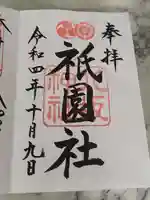 奉拝
祇園社
令和四年十月九日